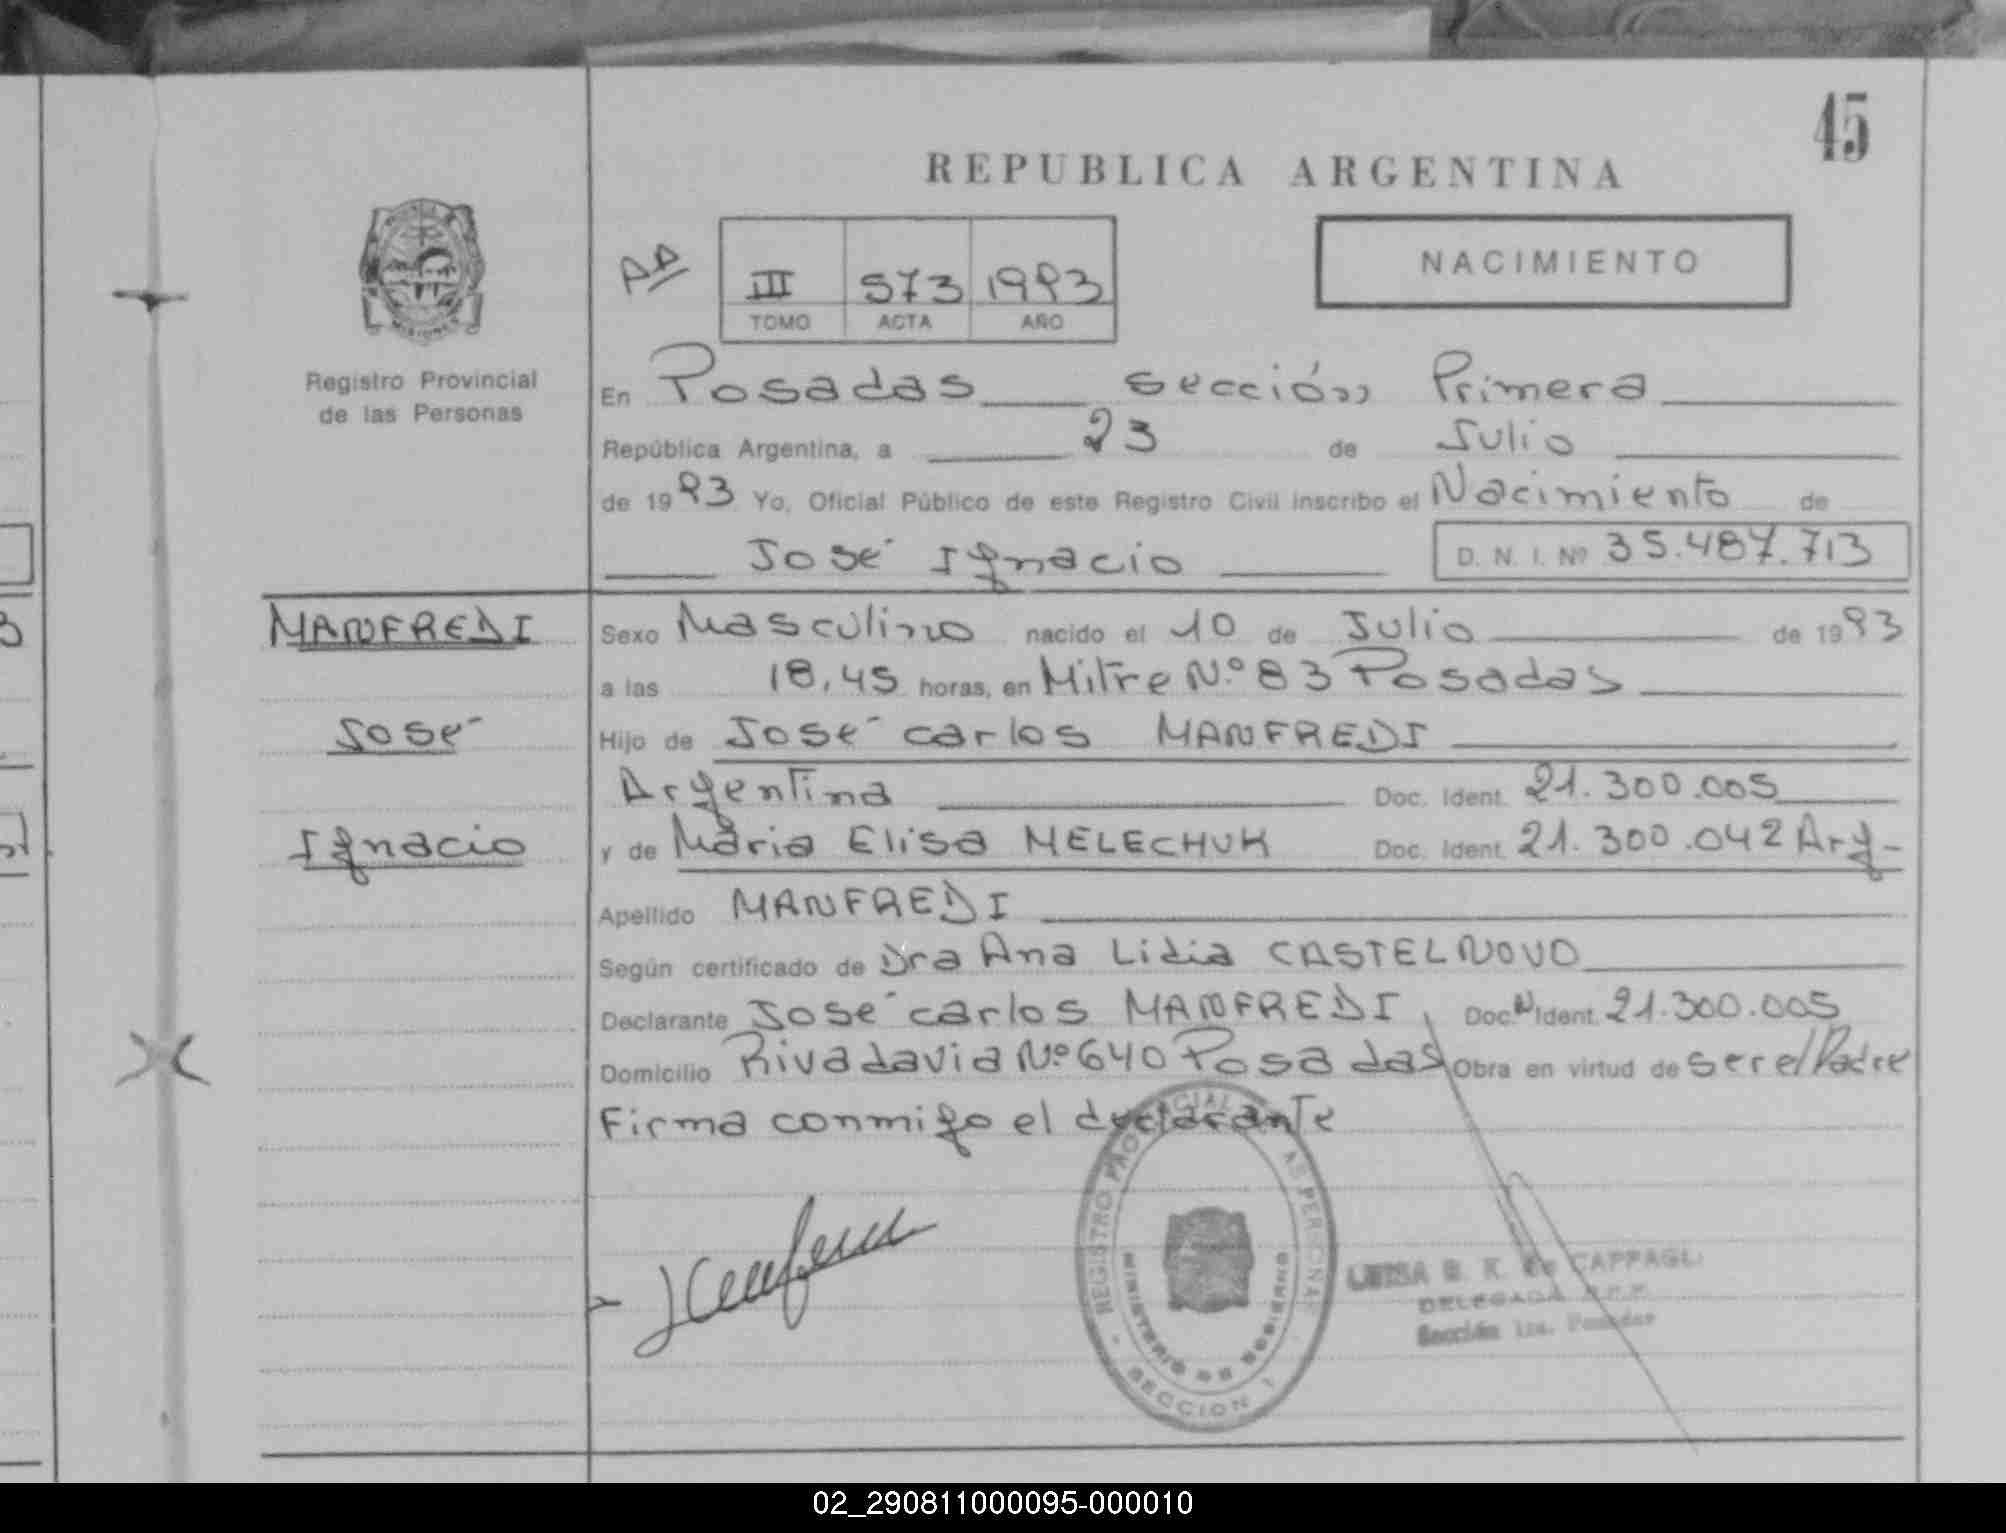 45
REPUBLICA ARGENTINA
NACIMIENTO
AA
III 573 1993
TOMO ACTA AÑO
MISIONES
Registro Provincial
de las Personas
En Posadas sección Primera
República Argentina, a 23 de Julio
de 1993 Yo, Oficial Público de este Registro Civil inscribo el Nacimiento de
José Ignacio D. N. I. Nº 35.487.713
MANFREDI
José
Ignacio
Sexo Masculino nacido el 10 de Julio de 1993
a las 18,45 horas, en Mitre N.º 83 Posadas
Hijo de José Carlos MANFREDI
Argentina Doc. Ident. 21.300.005
y de Maria Elisa MELECHUK Doc. Ident. 21.300.042 Arg-
Apellido MANFREDI
Según certificado de Dra Ana Lidia CASTELNOVO
Declarante José Carlos MANFREDI Doc. N Ident. 21.300.005
Domicilio Rivadavia Nº 640 Posadas Obra en virtud de ser el Padre
Firma conmigo el declarante
REGISTRO PROVINCIAL DE LAS PERSONAS
MINISTERIO DE GOBIERNO
SECCION 1
LUISA B. K. de CAPPAGLI
DELEGADA R.P.P.
Sección 1ra. Posadas
02_290811000095-000010